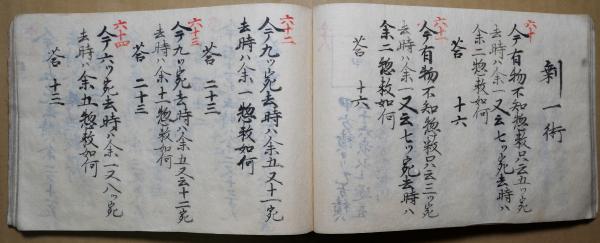 剰一術
六十
今有物不知惣数只云五ッ宛
去時ハ余一又云七ッ宛去時ハ
余二惣数如何
荅 十六
六十一
今有物不知惣数只云三ッ宛
去時ハ余一又云七ッ宛去時ハ
余二惣数如何
荅 十六
六十二
今九ッ宛去時ハ余五又十一宛
去時ハ余一惣数如何
荅 二十三
六十三
今九ッ宛去時ハ余五又云十二宛
去時ハ余十一惣数如何
荅 二十三
六十四
今六ッ宛去時ハ余一又八ッ宛
去時ハ余五惣数如何
荅 十三